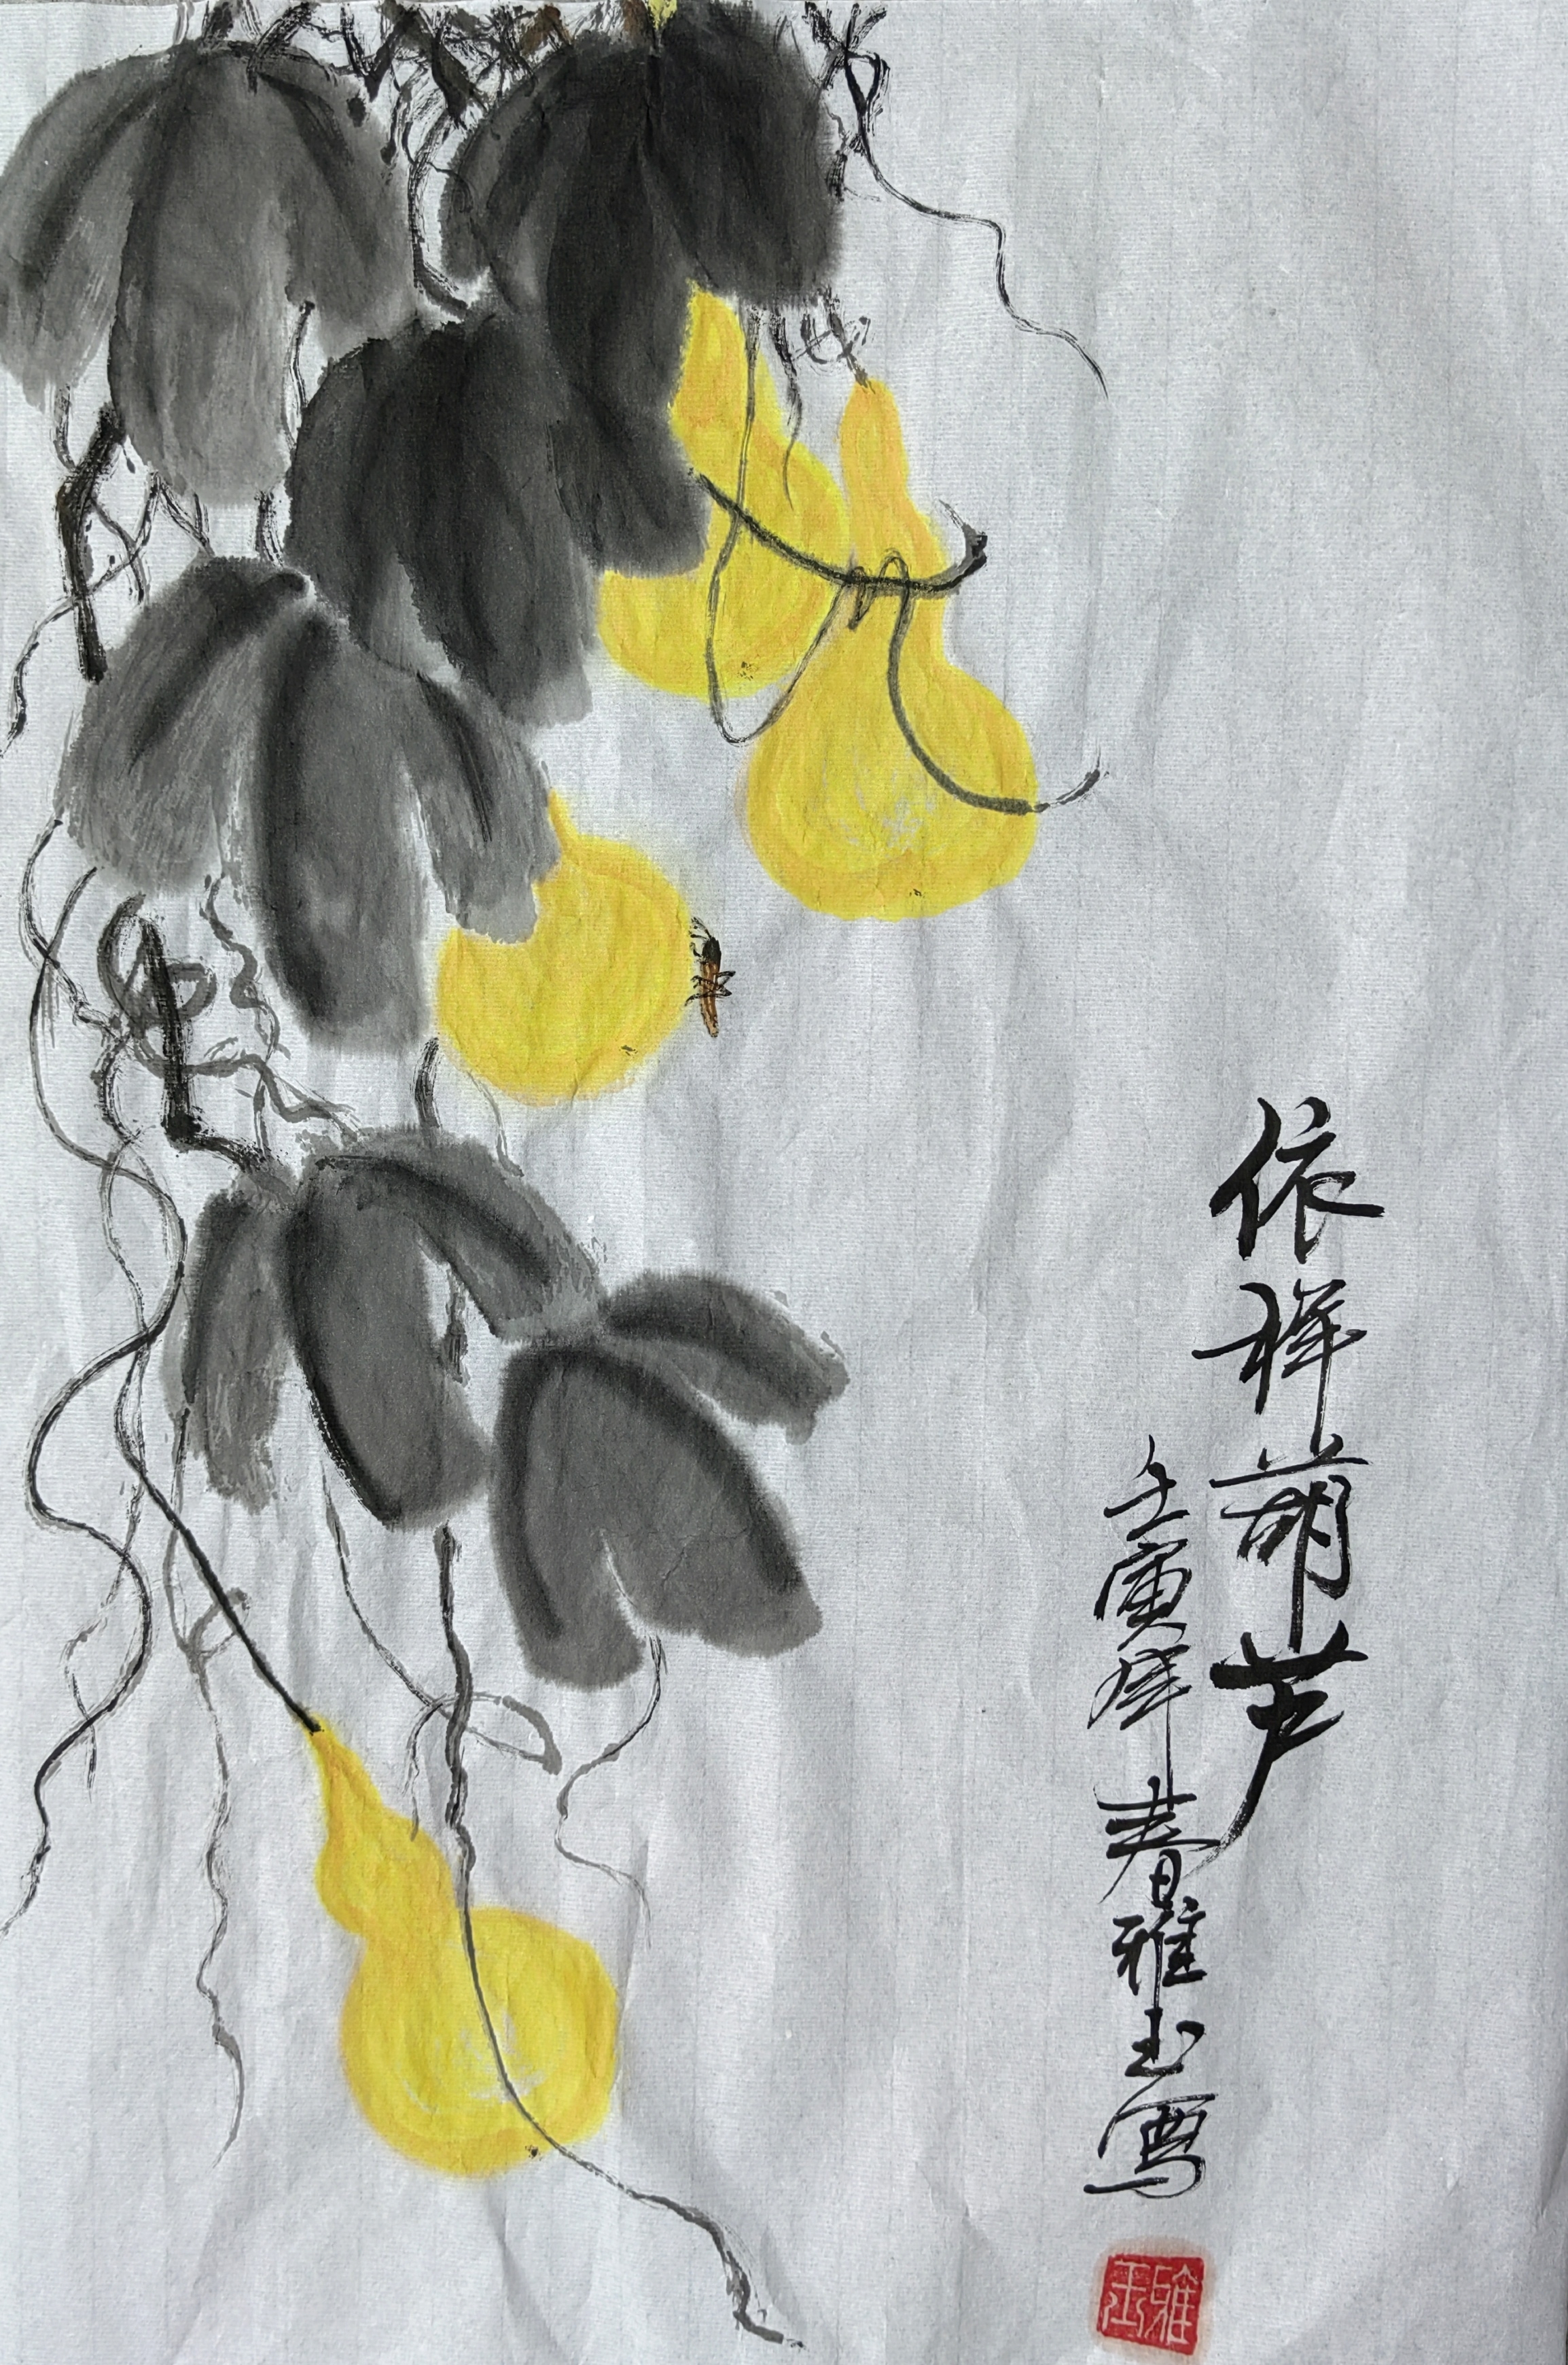 依样葫芦
壬寅年春雅玉写
雅玉